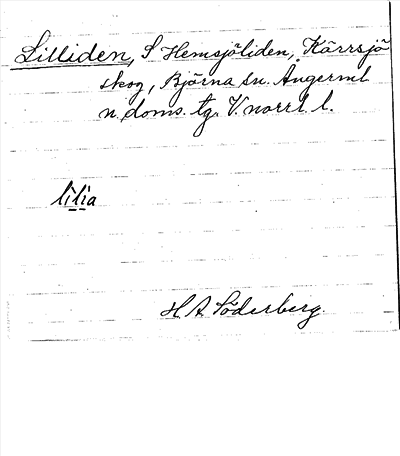 Lilliden, S Hemsjöliden, Kärrsjö
skog, Björna sn. Ångerml
n. doms. tg. V. norrl. l.
lilia
H. A. Söderberg.